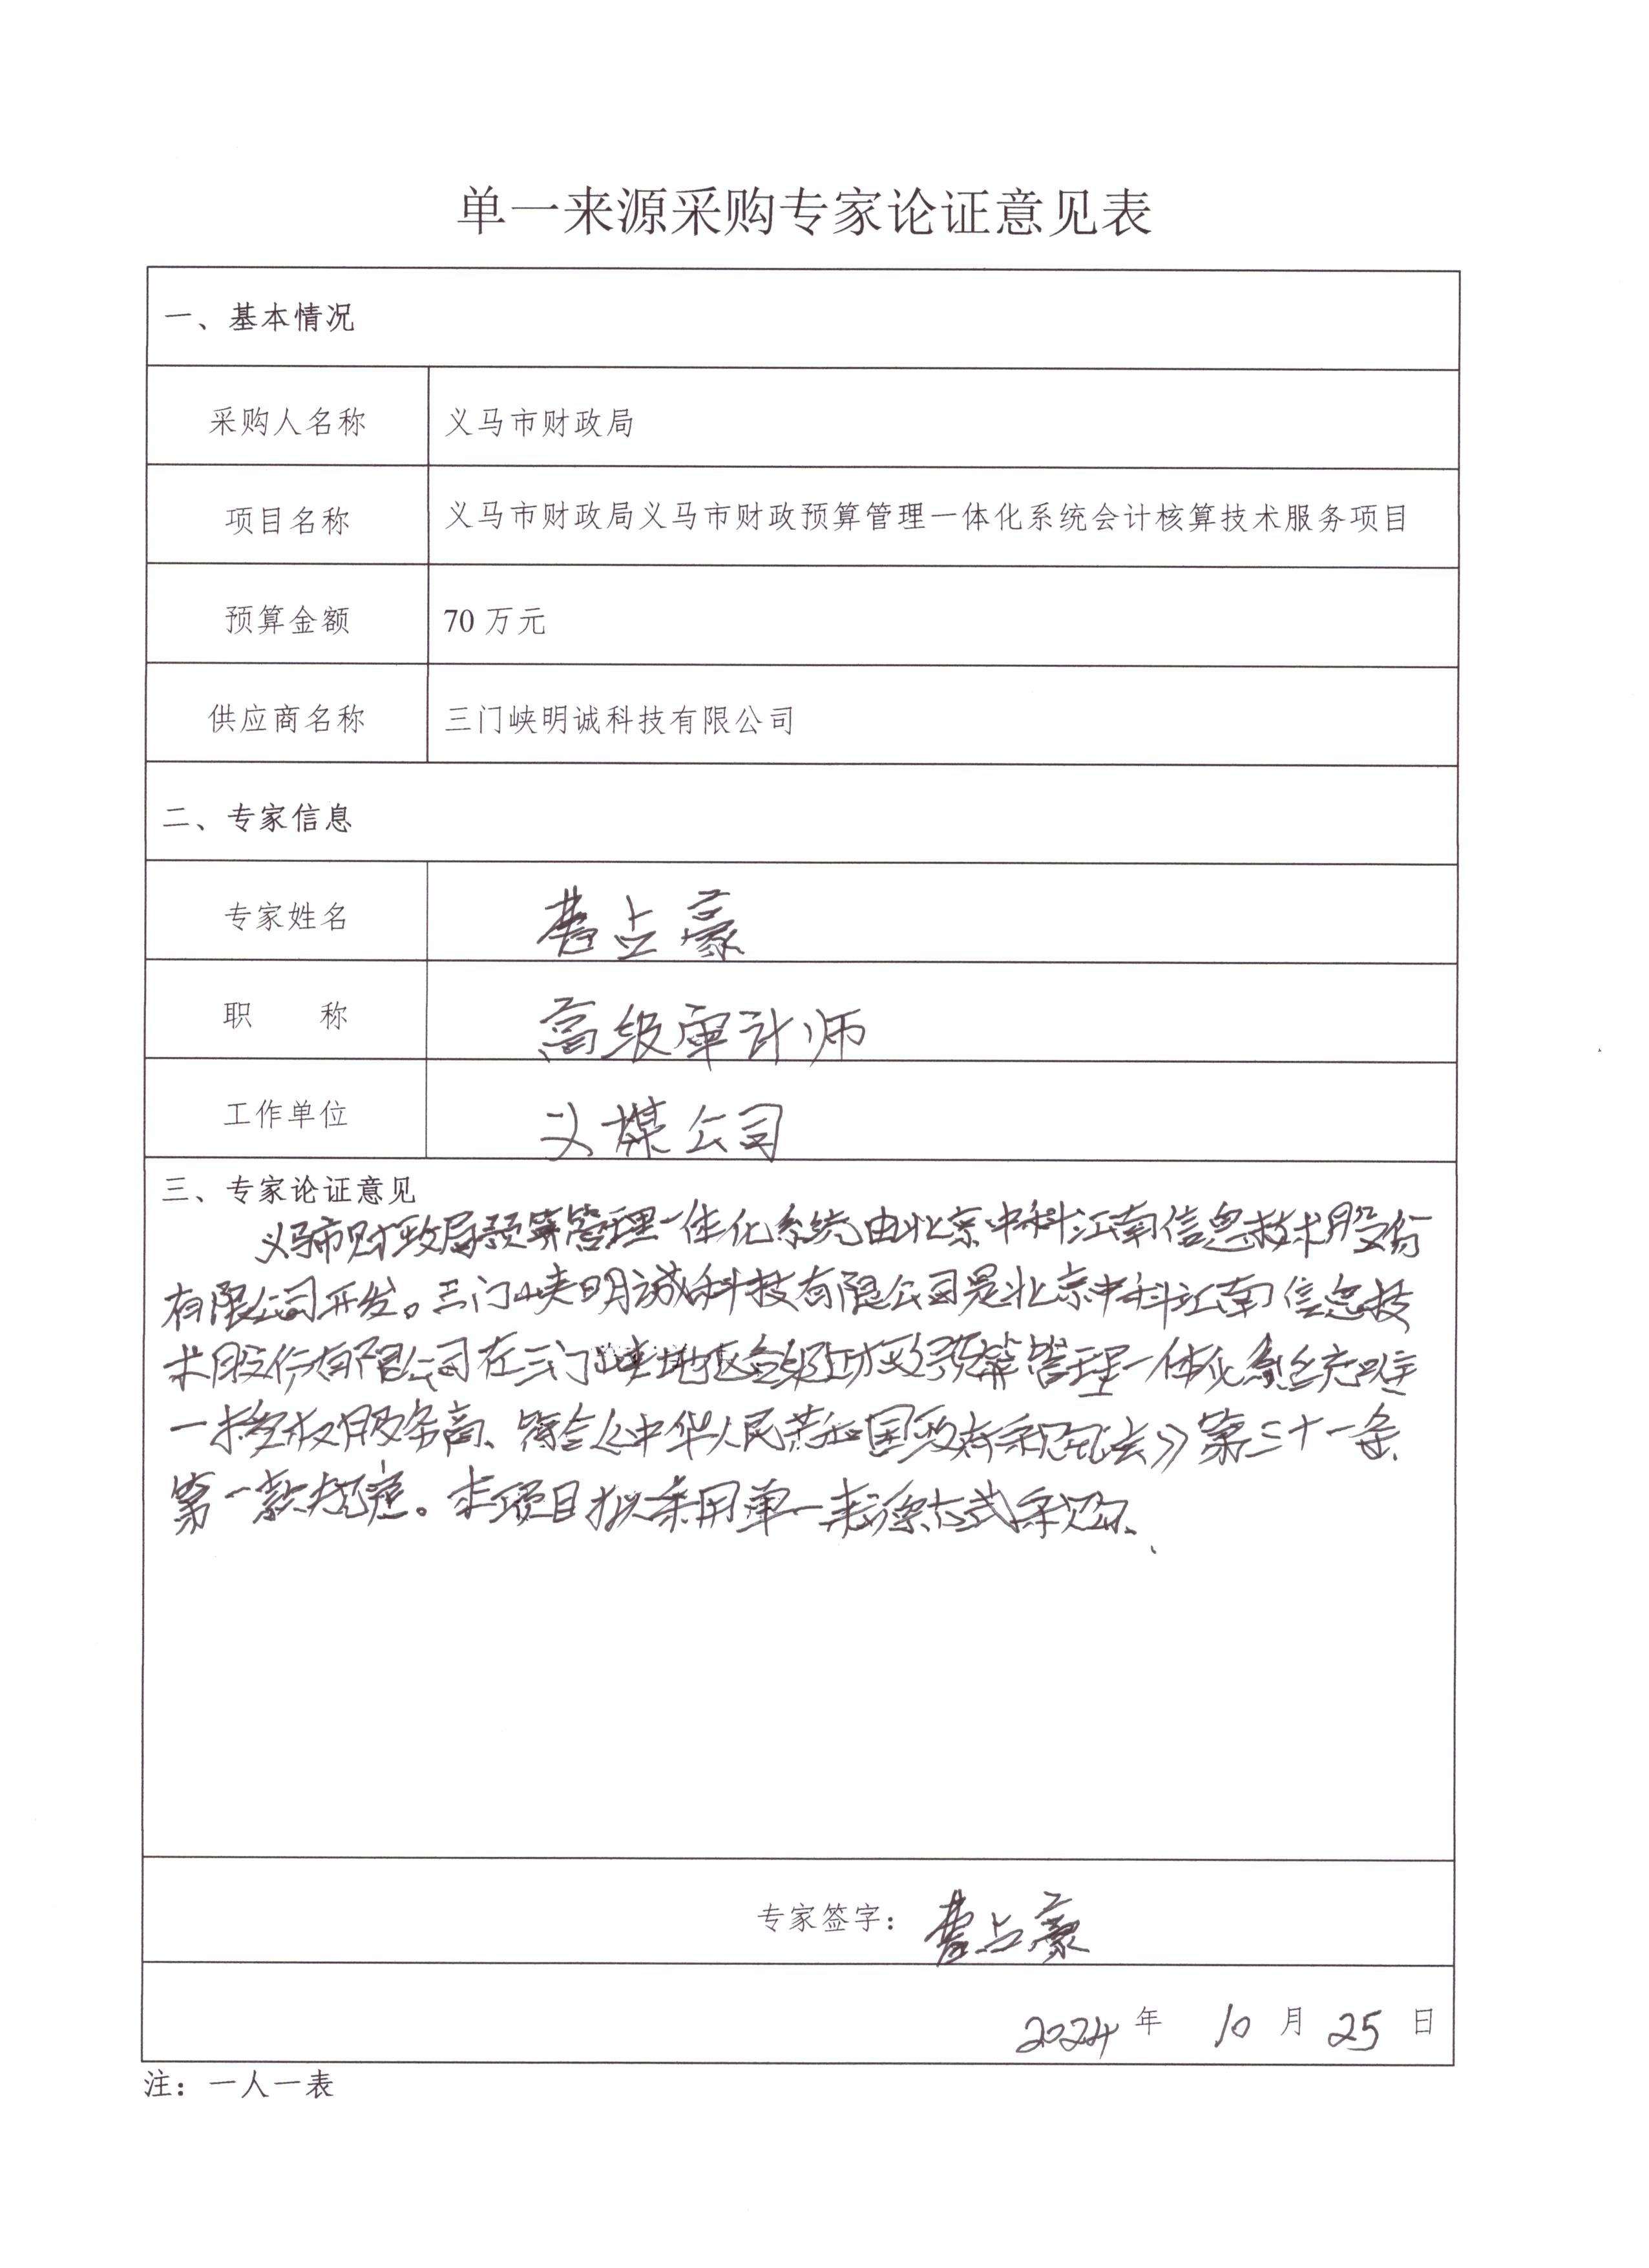 单一来源采购专家论证意见表
一、基本情况
采购人名称 义马市财政局
项目名称 义马市财政局义马市财政预算管理一体化系统会计核算技术服务项目
预算金额 70 万元
供应商名称 三门峡明诚科技有限公司
二、专家信息
专家姓名 曹占豪
职 称 高级审计师
工作单位 义煤公司
三、专家论证意见
义马市财政局预算管理一体化系统由北京中科江南信息技术股份
有限公司开发。三门峡明诚科技有限公司是北京中科江南信息技
术股份有限公司在三门峡地区各级财政预算管理一体化系统唯
一授权服务商、符合《中华人民共和国政府采购法》第三十一条
第一款规定。本项目拟采用单一来源方式采购、
专家签字：曹占豪
2024 年 10 月 25 日
注：一人一表